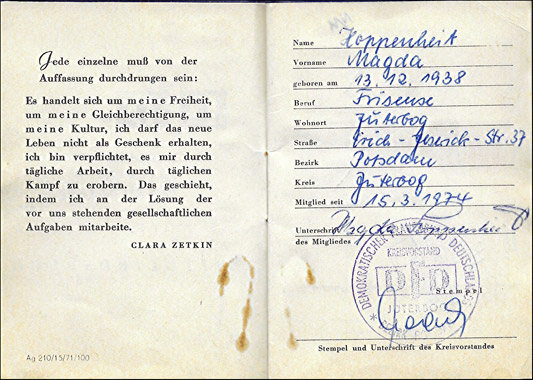 Jede einzelne muß von der
Auffassung durchdrungen sein:
Es handelt sich um meine Freiheit,
um meine Gleichberechtigung, um
meine Kultur, ich darf das neue
Leben nicht als Geschenk erhalten,
ich bin verpflichtet, es mir durch
tägliche Arbeit, durch täglichen
Kampf zu erobern. Das geschieht,
indem ich an der Lösung der
vor uns stehenden gesellschaftlichen
Aufgaben mitarbeite.
CLARA ZETKIN
Ag 210/15/71/100
Name Hoppenheit
Vorname Magda
geboren am 13.12.1938
Beruf Friseuse
Wohnort Jüterbog
Straße Erich- -Str. 37
Bezirk Potsdam
Kreis Jüterbog
Mitglied seit 15.3.1974
Unterschrift Magda Hoppenheit
des Mitgliedes
DEMOKRATISCHER FRAUENBUND DEUTSCHLANDS
KREISVORSTAND
DFD
JÜTERBOG
Stempel
Stempel und Unterschrift des Kreisvorstandes